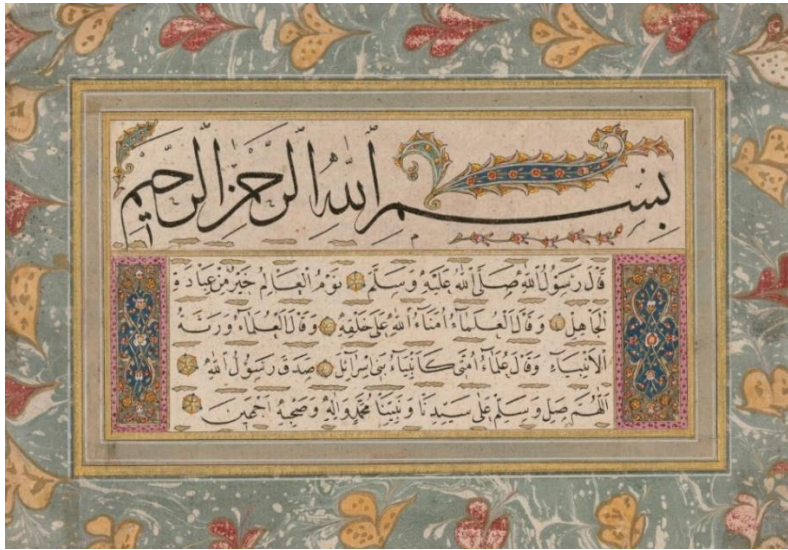 بِسْمِ اللّٰهِ الرَّحْمٰنِ الرَّحِيمِ
قَالَ رَسُولُ اللّٰهِ صَلَّى اللّٰهُ عَلَيْهِ وَسَلَّمَ نَوْمُ الْعَالِمِ خَيْرٌ مِنْ عِبَادَةِ
الْجَاهِلِ وَقَالَ الْعُلَمَاءُ اُمَنَاءُ اللّٰهِ عَلَى خَلْقِهِ وَقَالَ الْعُلَمَاءُ وَرَثَةُ
الْاَنْبِيَاءِ وَقَالَ عُلَمَاءُ اُمَّتِى كَاَنْبِيَاءِ بَنِى اِسْرَائِلَ صَدَقَ رَسُولُ اللّٰهِ
اَللّٰهُمَّ صَلِّ وَسَلِّمْ عَلَى سَيِّدِنَا وَنَبِيِّنَا مُحَمَّدٍ وَاٰلِهِ وَصَحْبِهِ اَجْمَعِينَ